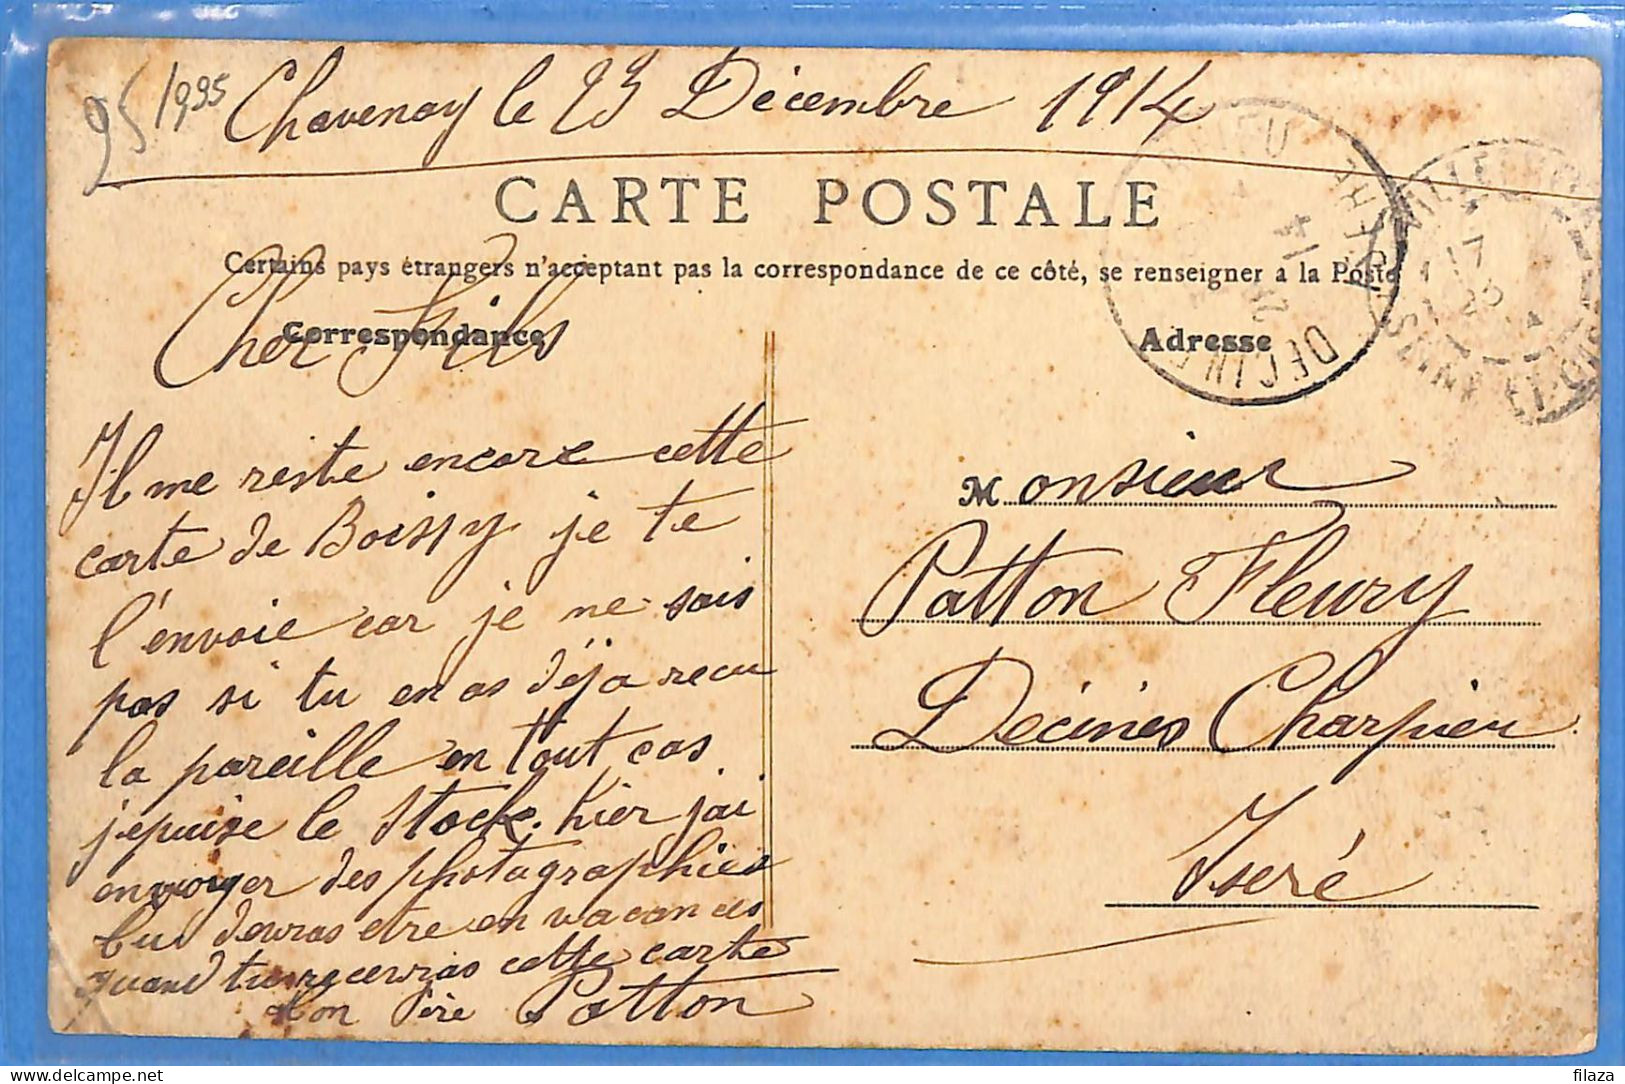 95 1935
Chavenay le 23 Décembre 1914
CARTE POSTALE
Certains pays étrangers n'acceptant pas la correspondance de ce côté, se renseigner a la Poste
Correspondance
Adresse
Cher Fils
Il me reste encore cette
carte de Boissy je te
l'envoie car je ne sais
pas si tu en as déja recu
la pareille en tout cas
j'epuise le Stock. hier j'ai
envoyer des photographies
tu devras etre en vacances
quand tu recevras cette carte
ton Père Patton
Monsieur
Patton Fleury
Décines Charpieu
Iseré
DECINES
ISERE
14
17
25
filaza